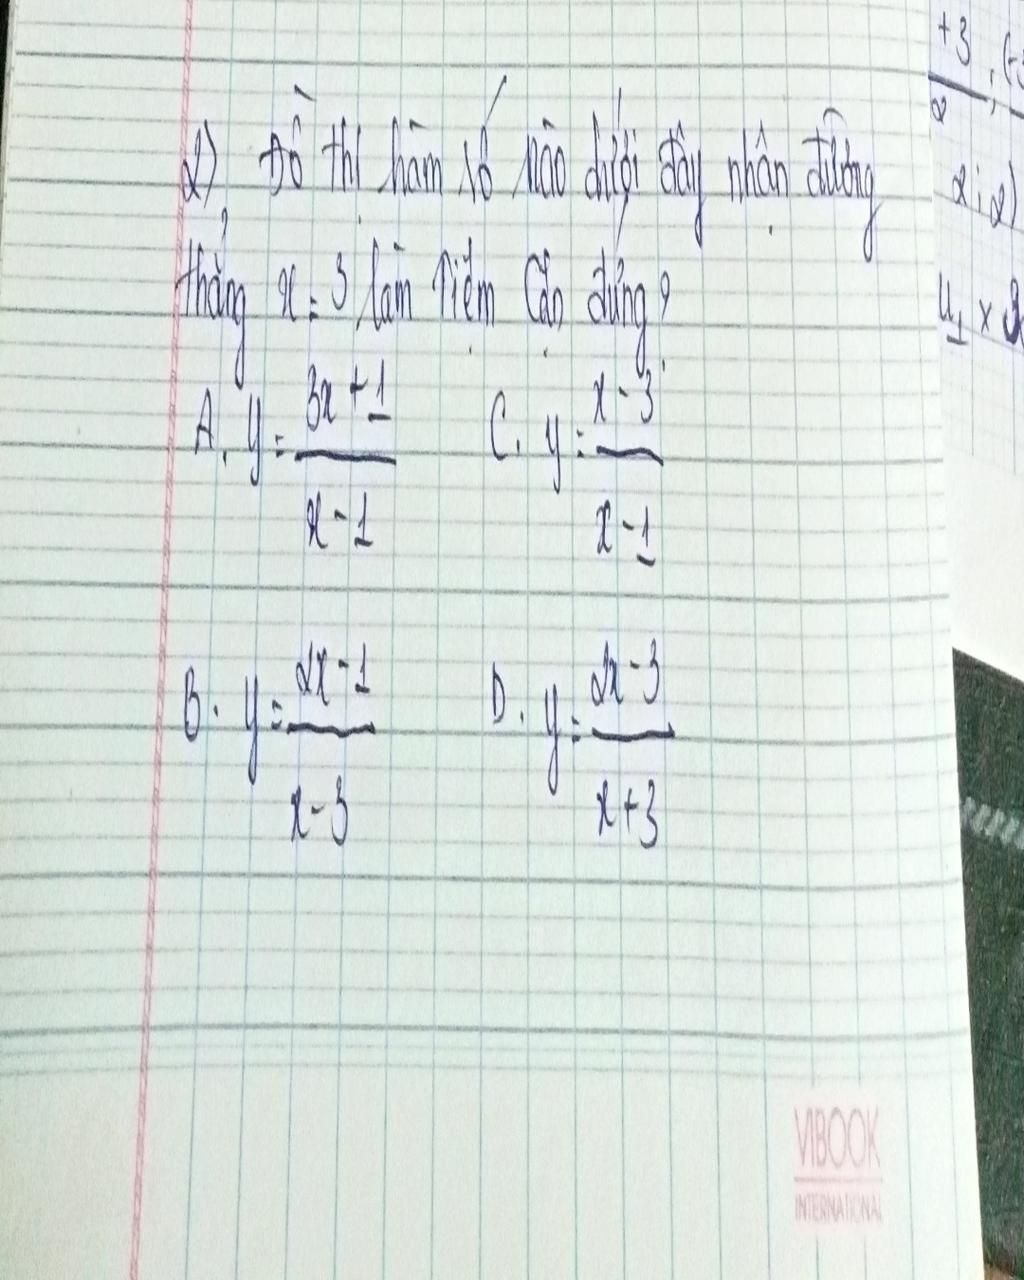 2) Đồ thị hàm số nào dưới đây nhận đường
thẳng x = 3 làm tiệm cận đứng?
A. y = (3x + 1)/(x - 1) C. y = (x - 3)/(x - 1)
B. y = (2x - 1)/(x - 3) D. y = (2x - 3)/(x + 3)
+3
2
2;2)
u1 x
VIBOOK
INTERNATIONAL